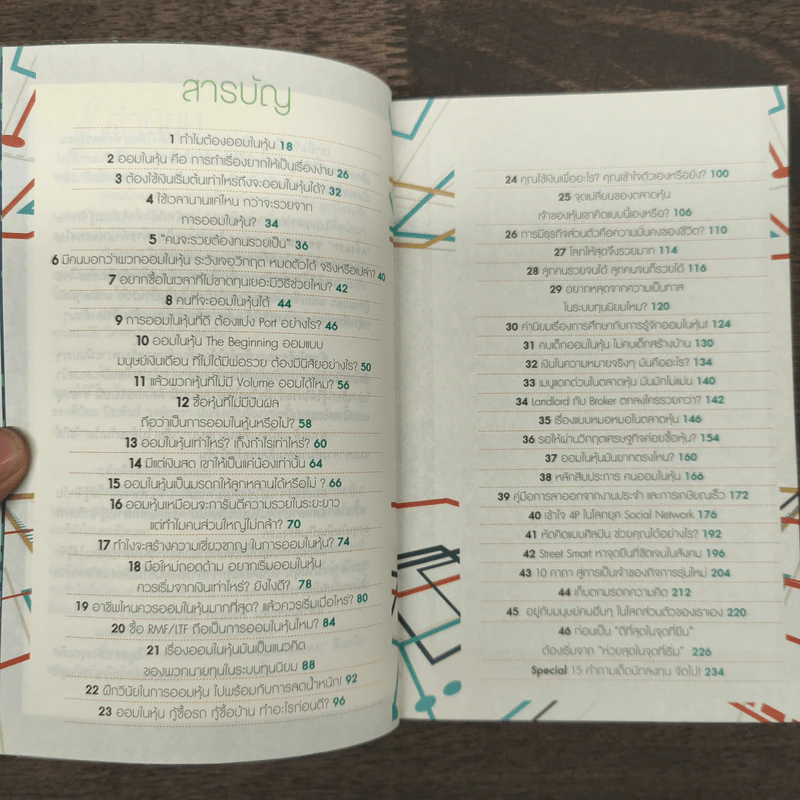 สารบัญ
1 ทำไมต้องออมในหุ้น 18
2 ออมในหุ้น คือ การทำเรื่องยากให้เป็นเรื่องง่าย 26
3 ต้องใช้เงินเริ่มต้นเท่าไหร่ถึงจะออมในหุ้นได้? 32
4 ใช้เวลานานแค่ไหน กว่าจะรวยจาก
การออมในหุ้น? 34
5 “คนจะรวยต้องทนรวยเป็น” 36
6 มีคนบอกว่าพวกออมในหุ้น ระวังเจอวิกฤต หมดตัวได้ จริงหรือเปล่า? 40
7 อยากซื้อในเวลาที่ไม่ขาดทุนเยอะมีวิธีช่วยไหม? 42
8 คนที่จะออมในหุ้นได้ 44
9 การออมในหุ้นที่ดี ต้องแบ่ง Port อย่างไร? 46
10 ออมในหุ้น The Beginning ออมแบบ
มนุษย์เงินเดือน ที่ไม่ได้มีพ่อรวย ต้องมีนิสัยอย่างไร? 50
11 แล้วพวกหุ้นที่ไม่มี Volume ออมได้ไหม? 56
12 ซื้อหุ้นที่ไม่มีปันผล
ถือว่าเป็นการออมในหุ้นหรือไม่? 58
13 ออมในหุ้นเท่าไหร่? เก็งกำไรเท่าไหร่? 60
14 มีแต่เงินสด เขาให้เป็นแค่น้องเท่านั้น 64
15 ออมในหุ้นเป็นมรดกให้ลูกหลานได้หรือไม่ ? 66
16 ออมหุ้นเหมือนจะการันตีความรวยในระยะยาว
แต่ทำไมคนส่วนใหญ่ไม่กล้า? 70
17 ทำไงจะสร้างความเชี่ยวชาญ ในการออมในหุ้น? 74
18 มือใหม่ถอดด้าม อยากเริ่มออมในหุ้น
ควรเริ่มจากเงินเท่าไหร่? ยังไงดี? 78
19 อาชีพไหนควรออมในหุ้นมากที่สุด? แล้วควรเริ่มเมื่อไหร่? 80
20 ซื้อ RMF/LTF ถือเป็นการออมในหุ้นไหม? 84
21 เรื่องออมในหุ้นมันเป็นแนวคิด
ของพวกนายทุนในระบบทุนนิยม 88
22 ฝึกวินัยในการออมหุ้น ไปพร้อมกับการลดน้ำหนัก! 92
23 ออมในหุ้น กู้ซื้อรถ กู้ซื้อบ้าน ทำอะไรก่อนดี? 96
24 คุณใช้เงินเพื่ออะไร? คุณเข้าใจตัวเองหรือยัง? 100
25 จุดเปลี่ยนของตลาดหุ้น
เจ้าของหุ้นเขาคิดแบบนี้เองหรือ? 106
26 การมีธุรกิจส่วนตัวคือความมั่นคงของชีวิต? 110
27 โลภให้สุดจึงรวยมาก 114
28 ลูกคนรวยจนได้ ลูกคนจนก็รวยได้ 116
29 อยากหลุดจากความเป็นทาส
ในระบบทุนนิยมไหม? 120
30 ค่านิยมเรื่องการศึกษากับการรู้จักออมในหุ้น! 124
31 คบเด็กออมในหุ้น ไม่คบเด็กสร้างบ้าน 130
32 เงินในความหมายจริงๆ มันคืออะไร? 134
33 เมนูแดกด่วนในตลาดหุ้น มันมักไม่แม่น 140
34 Landlord กับ Broker ตกลงใครรวยกว่า? 142
35 เรื่องแบบหมอหมอในตลาดหุ้น 146
36 รอให้ผ่านวิกฤตเศรษฐกิจค่อยซื้อหุ้น? 154
37 ออมในหุ้นมันยากตรงไหน? 160
38 หลักสิบประการ คนออมในหุ้น 166
39 คู่มือการลาออกจากงานประจำ และการเกษียณเร็ว 172
40 เข้าใจ 4P ในโลกยุค Social Network 176
41 หัดคิดแบบศิลปิน ช่วยคุณได้อย่างไร? 192
42 Street Smart หาจุดยืนที่ชัดเจนในสังคม 196
43 10 คาถา สู่การเป็นเจ้าของกิจการรุ่นใหม่ 204
44 เก็บตกมรดกความคิด 212
45 อยู่กับมนุษย์คนอื่นๆ ในโลกส่วนตัวของเราเอง 220
46 ก่อนเป็น “ดีที่สุดในจุดที่ยืน”
ต้องเริ่มจาก “ห่วยสุดในจุดที่เริ่ม” 226
Special 15 คำถามเด็ดนักลงทุน จัดไป! 234